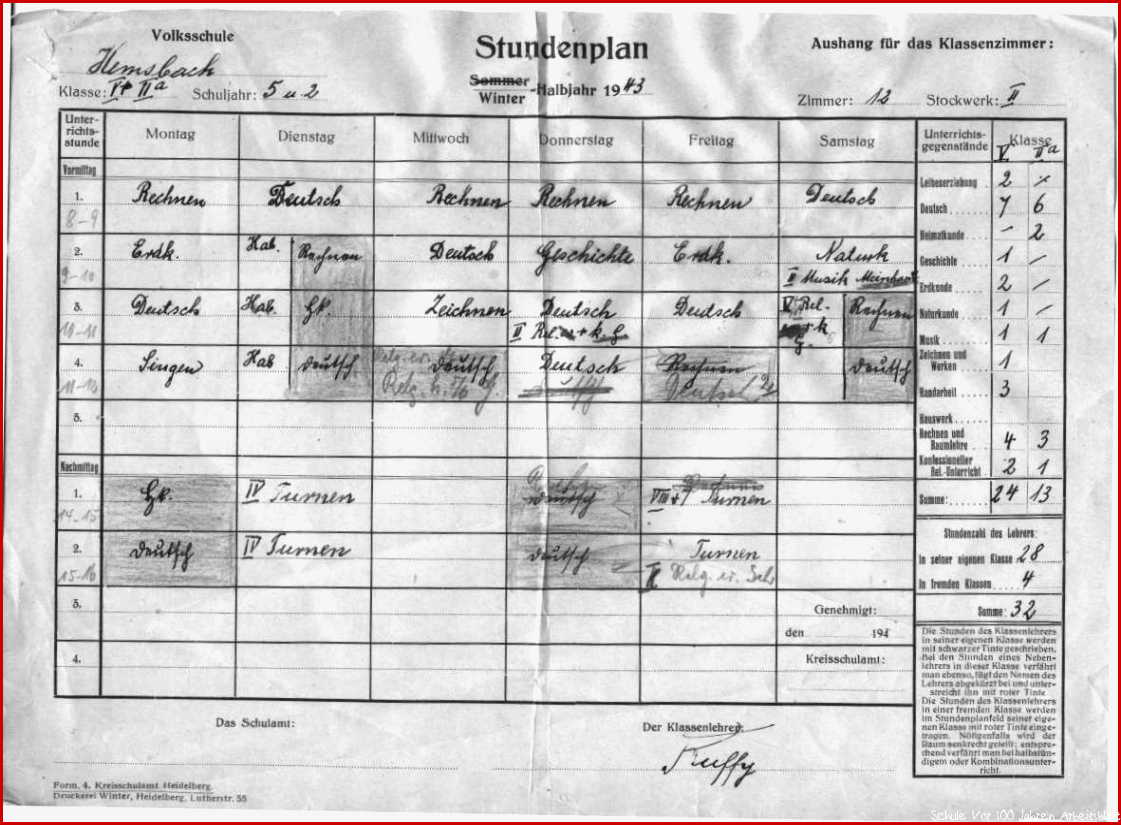 Volksschule
Hemsbach
Klasse: V + IIa Schuljahr: 5 u 2
Stundenplan
Sommer
Winter -Halbjahr 1943
Aushang für das Klassenzimmer:
Zimmer: 12 Stockwerk: II
Unter-
richts-
stunde
Montag Dienstag Mittwoch Donnerstag Freitag Samstag
Vormittag
1. Rechnen Deutsch Rechnen Rechnen Rechnen Deutsch
8-9
2. Erdk. Hab. Rechnen Deutsch Geschichte Erdk. Naturk
9-10 II Musik Meinhard
3. Deutsch Hab. Hk. Zeichnen Deutsch Deutsch V Rel. Rechnen
10-11 II Rel. + k. g. + k g.
4. Singen Hab Deutsch Relg. ev. Deutsch Deutsch Rechnen Deutsch
11-12 Relg. k. Deutsch Deutsch
5.
Nachmittag
1. Hk. IV Turnen Deutsch VIII + Turnen
14-15
2. Deutsch IV Turnen Deutsch Turnen
15-16 Relg. ev. Sch
3.
4.
Unterrichts-
gegenstände
Klasse
V IIa
Leibeserziehung 2 ×
Deutsch 7 6
Heimatkunde - 2
Geschichte 1 /
Erdkunde 2 /
Naturkunde 1 /
Musik 1 1
Zeichnen und
Werken 1
Handarbeit 3
Hauswerk
Rechnen und
Raumlehre 4 3
Konfessioneller
Rel.-Unterricht 2 1
Summe: 24 13
Stundenzahl des Lehrers:
In seiner eigenen Klasse 28
In fremden Klassen 4
Summe: 32
Die Stunden des Klassenlehrers
in seiner eigenen Klasse werden
mit schwarzer Tinte geschrieben.
Bei den Stunden eines Neben-
lehrers in dieser Klasse verfährt
man ebenso, fügt den Namen des
Lehrers abgekürzt bei und unter-
streicht ihn mit roter Tinte
Die Stunden des Klassenlehrers
in einer fremden Klasse werden
im Stundenplanfeld seiner eige-
nen Klasse mit roter Tinte einge-
tragen. Nötigenfalls wird der
Raum senkrecht geteilt; entspre-
chend verfährt man bei halbstün-
digem oder Kombinationsunter-
richt.
Genehmigt:
den 194
Kreisschulamt:
Das Schulamt:
Der Klassenlehrer:
Form. 4. Kreisschulamt Heidelberg
Druckerei Winter, Heidelberg, Lutherstr. 55
Schule Vor 100 Jahren Arbeitsblatt